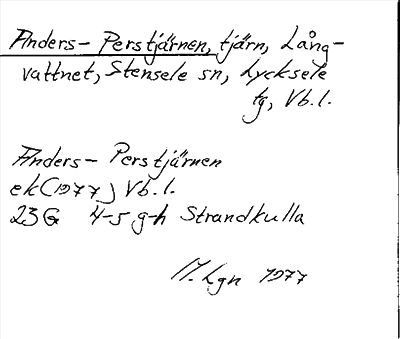 Anders-Perstjärnen, tjärn, Lång-
vattnet, Stensele sn, Lycksele
tg, Vb.l.
Anders-Perstjärnen
ek (1977) Vb.l.
23G 4-5 g-h Strandkulla
M. Lgn 1977